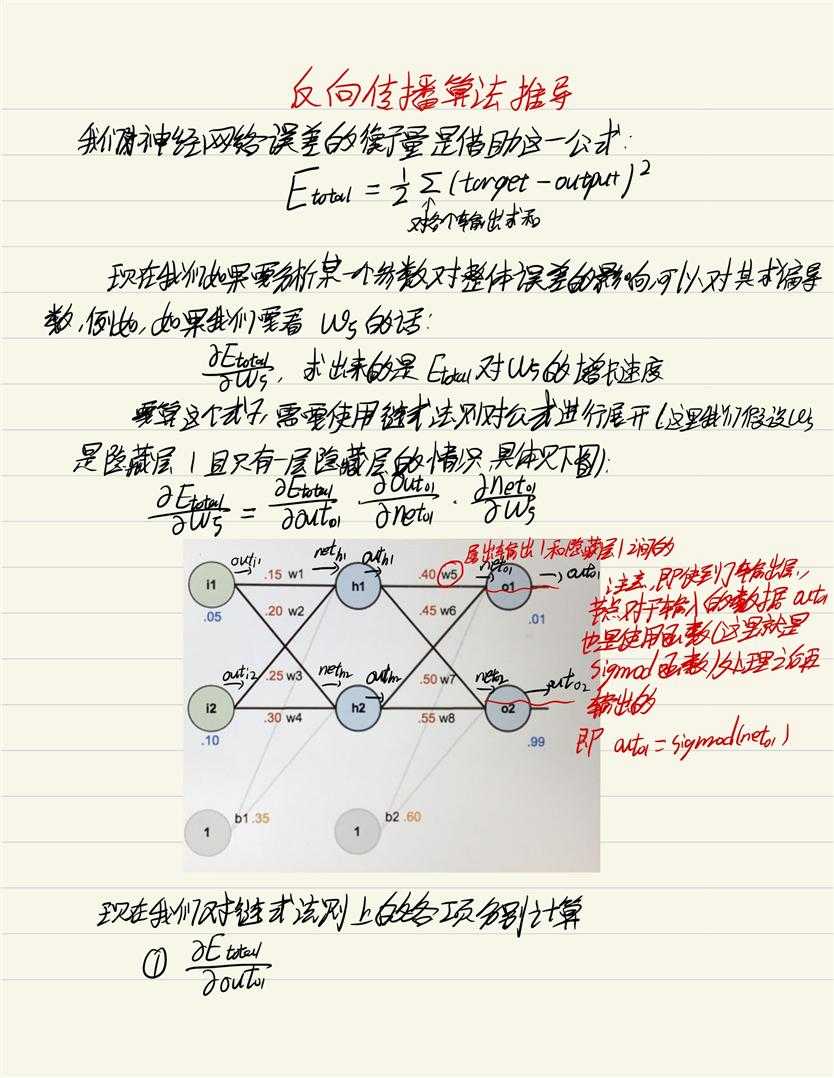 反向传播算法推导
我们对神经网络误差的衡量是借助这一公式:
E total = 1/2 Σ (target - output)²
对各个输出求和
现在我们如果要分析某一个参数对整体误差的影响,可以对其求偏导
数,例如,如果我们要看 w₅ 的话:
∂E total/∂w₅, 求出来的是 E total 对 w₅ 的增长速度
要算这个式子,需要使用链式法则对公式进行展开(这里我们假设w₅
是隐藏层1且只有一层隐藏层的情况,具体见下图):
∂E total/∂w₅ = ∂E total/∂out₀₁ · ∂out₀₁/∂net₀₁ · ∂net₀₁/∂w₅
是输出1和隐藏层1之间的
out i1 net h1 out h1 net o1 out o1
i1 .15 w1 h1 .40 w5 o1
.05 .20 w2 .45 w6 .01
out i2 .25 w3 net h2 out h2 .50 w7 net o2 out o2
i2 .30 w4 h2 .55 w8 o2
.10 .99
1 b1 .35 1 b2 .60
注意,即使到了输出层,
节点对于输入的数据 out o1
也是使用函数(这里就是
sigmod函数)处理之后再
输出的
即 out o1 = sigmod(net o1)
现在我们对链式法则上的各项分别计算
① ∂E total/∂out o1